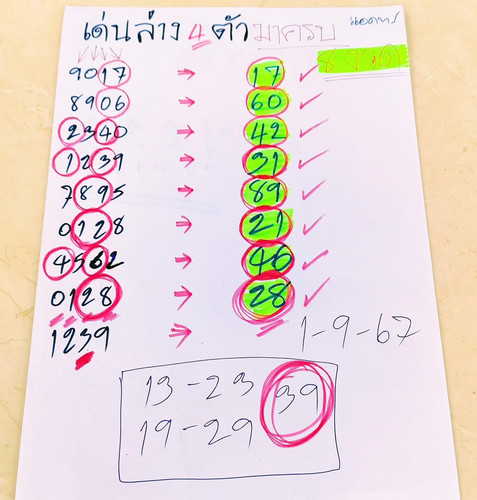 เด่นล่าง 4 ตัวมาครบ
9017 → 17 ✓
8906 → 60 ✓
2340 → 42 ✓
1239 → 31 ✓
7895 → 89 ✓
0128 → 21 ✓
4562 → 46 ✓
0128 → 28 ✓
1239 →
1-9-67
13-23 39
19-29